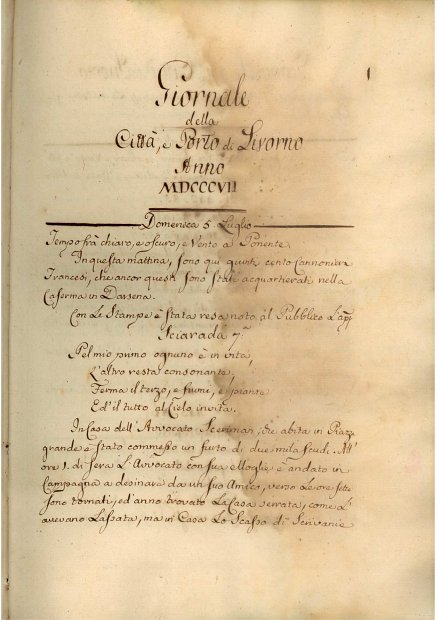 1
Giornale
della
Città, e Porto di Livorno
Anno
MDCCCVII
Domenica 5. Luglio
Tempo frà chiaro, e oscuro, e Vento a Ponente.
In questa mattina, sono qui giunti cento Cannonieri
Francesi, che ancor questi sono stati acquartierati nella
Caserma in Darsena.
Con Le Stampe è stata resa noto al Pubblico L'app
Sciarada 7.a
Pel mio primo ognuno è in vita,
L'altro resta consonante.
Ferma il terzo, e fiumi, e piante
Ed il tutto al Cielo invita.
In Casa dell'Avvocato che abita in Piazza
grande è stato commesso un furto di due mila scudi. All'
ore 1. di sera L'Avvocato con sua e andato in
Campagna a desinare da un suo Amico, verso Le ore sette
sono tornati, ed'anno trovato La Casa serrata, come L'
avevano Lassata, ma in Casa Lo Scasso di Scrivanie